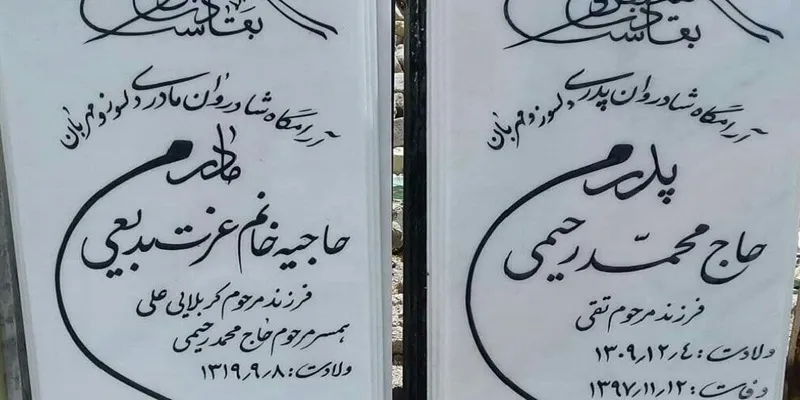 بقا
آرامگاه شادروان پدری دلسوز و مهربان
پدرم
حاج محمّد رحیمی
فرزند مرحوم تقی
ولادت: ۱۳۰۹٫۱۲٫۴
وفات: ۱۳۹۷٫۱۱٫۱۲
بقا
آرامگاه شادروان مادری دلسوز و مهربان
مادرم
حاجیه خانم عزت بدیعی
فرزند مرحوم کربلایی علی
همسر مرحوم حاج محمد رحیمی
ولادت: ۱۳۱۹٫۹٫۸